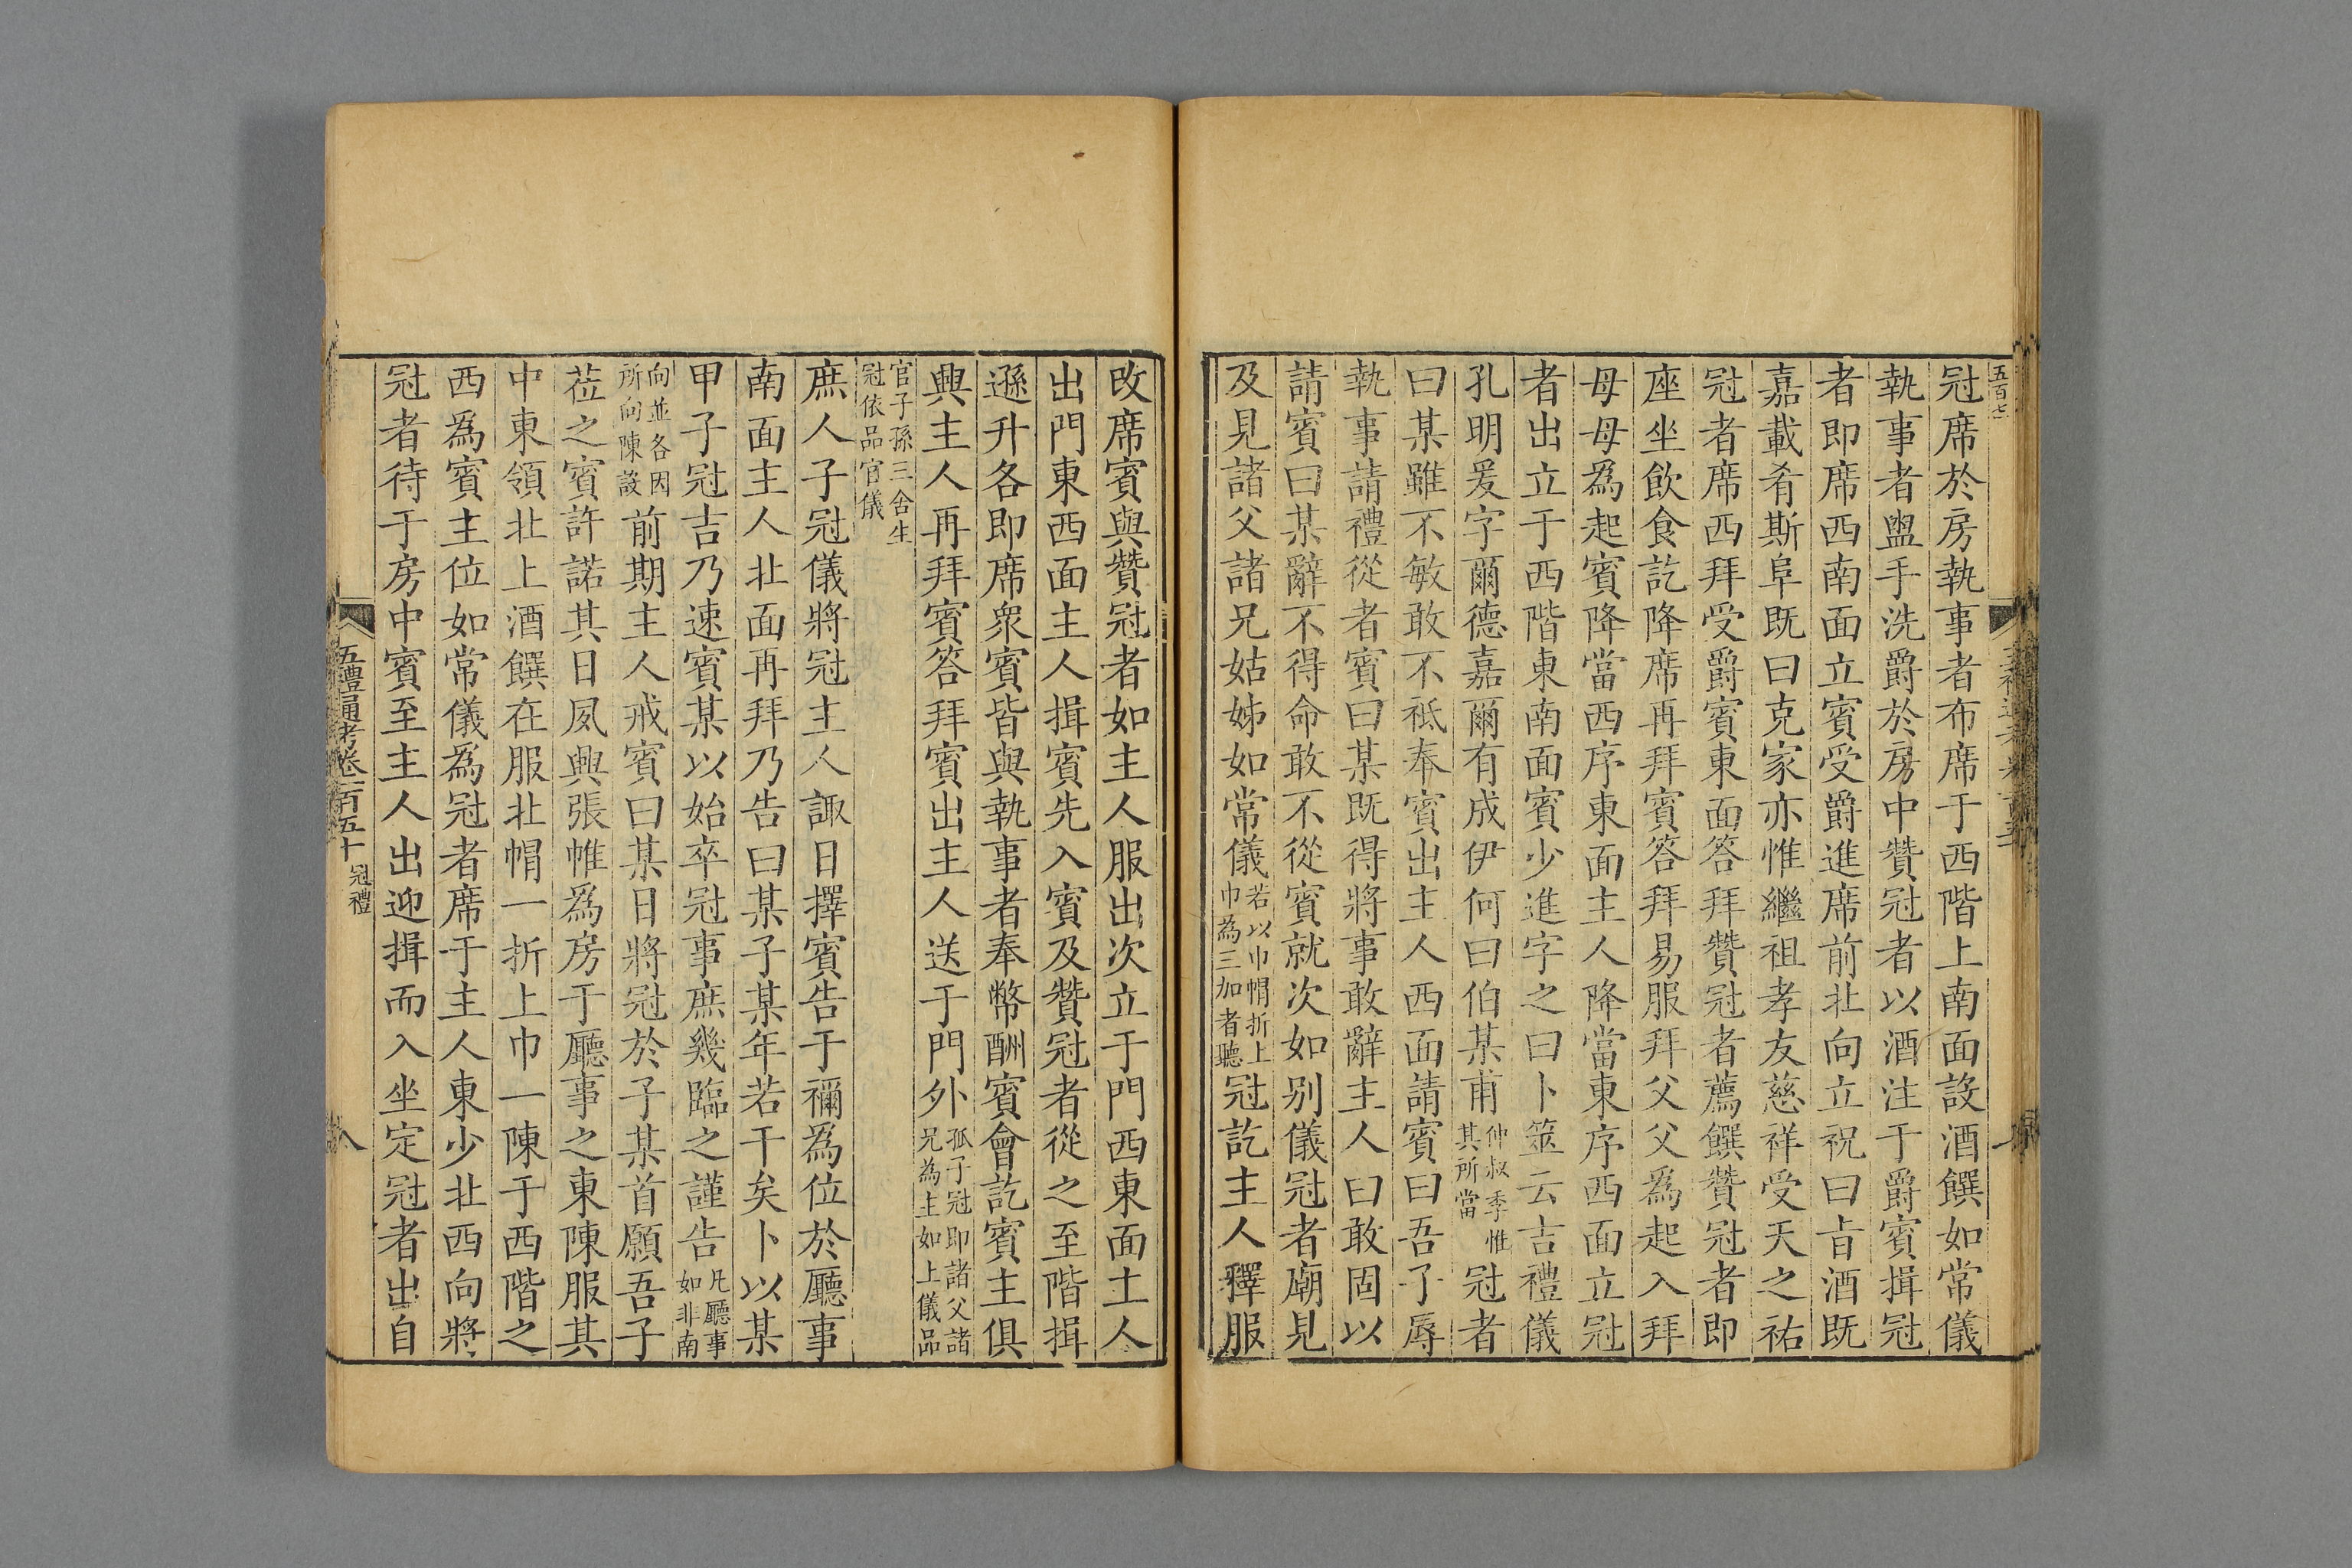 五百七
冠席於房執事者布席于西階上南面設酒饌如常儀
執事者盥手洗爵於房中贊冠者以酒注于爵賓揖冠
者即席西南面立賓受爵進席前北向立祝曰旨酒既
嘉載肴斯阜既曰克家亦惟繼祖孝友慈祥受天之祐
冠者席西拜受爵賓東面答拜贊冠者薦饌贊冠者即
座坐飲食訖降席再拜賓答拜易服拜父父爲起入拜
母母爲起賓降當西序東面主人降當東序西面立冠
者出立于西階東南面賓少進字之曰卜筮云吉禮儀
孔明爰字爾德嘉爾有成伊何曰伯某甫仲叔季惟其所當冠者
曰某雖不敏敢不祗奉賓出主人西面請賓曰吾子辱
執事請禮從者賓曰某既得將事敢辭主人曰敢固以
請賓曰某辭不得命敢不從賓就次如别儀冠者廟見
及見諸父諸兄姑姊如常儀若以巾帽折上巾為三加者聽冠訖主人釋服
改席賓與贊冠者如主人服出次立于門西東面士人
出門東西面主人揖賓先入賓及贊冠者從之至階揖
遜升各即席衆賓皆與執事者奉幣酬賓會訖賓主俱
興主人再拜賓答拜賓出主人送于門外孤子冠即諸父諸兄為主如上儀品
官子孫三舍生冠依品官儀
庶人子冠儀將冠主人諏日擇賓告于禰爲位於廳事
南面主人北面再拜乃告曰某子某年若干矣卜以某
甲子冠吉乃速賓某以始卒冠事庶幾臨之謹告凡廳事如非南
向並各因所向陳設前期主人戒賓曰某日將冠於子某首願吾子
莅之賓許諾其日夙興張帷爲房于廳事之東陳服其
中東領北上酒饌在服北帽一折上巾一陳于西階之
西爲賓主位如常儀爲冠者席于主人東少北西向將
冠者待于房中賓至主人出迎揖而入坐定冠者出自
五禮通考卷一百五十 冠禮
八